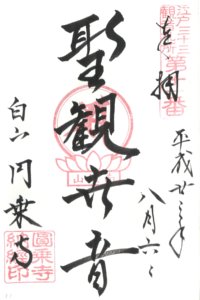 江戸三十三
観音札所
第十一番
奉拝
平成廿三年
八月六日
聖観世音
白山 円乗寺
圓乗寺
納経印